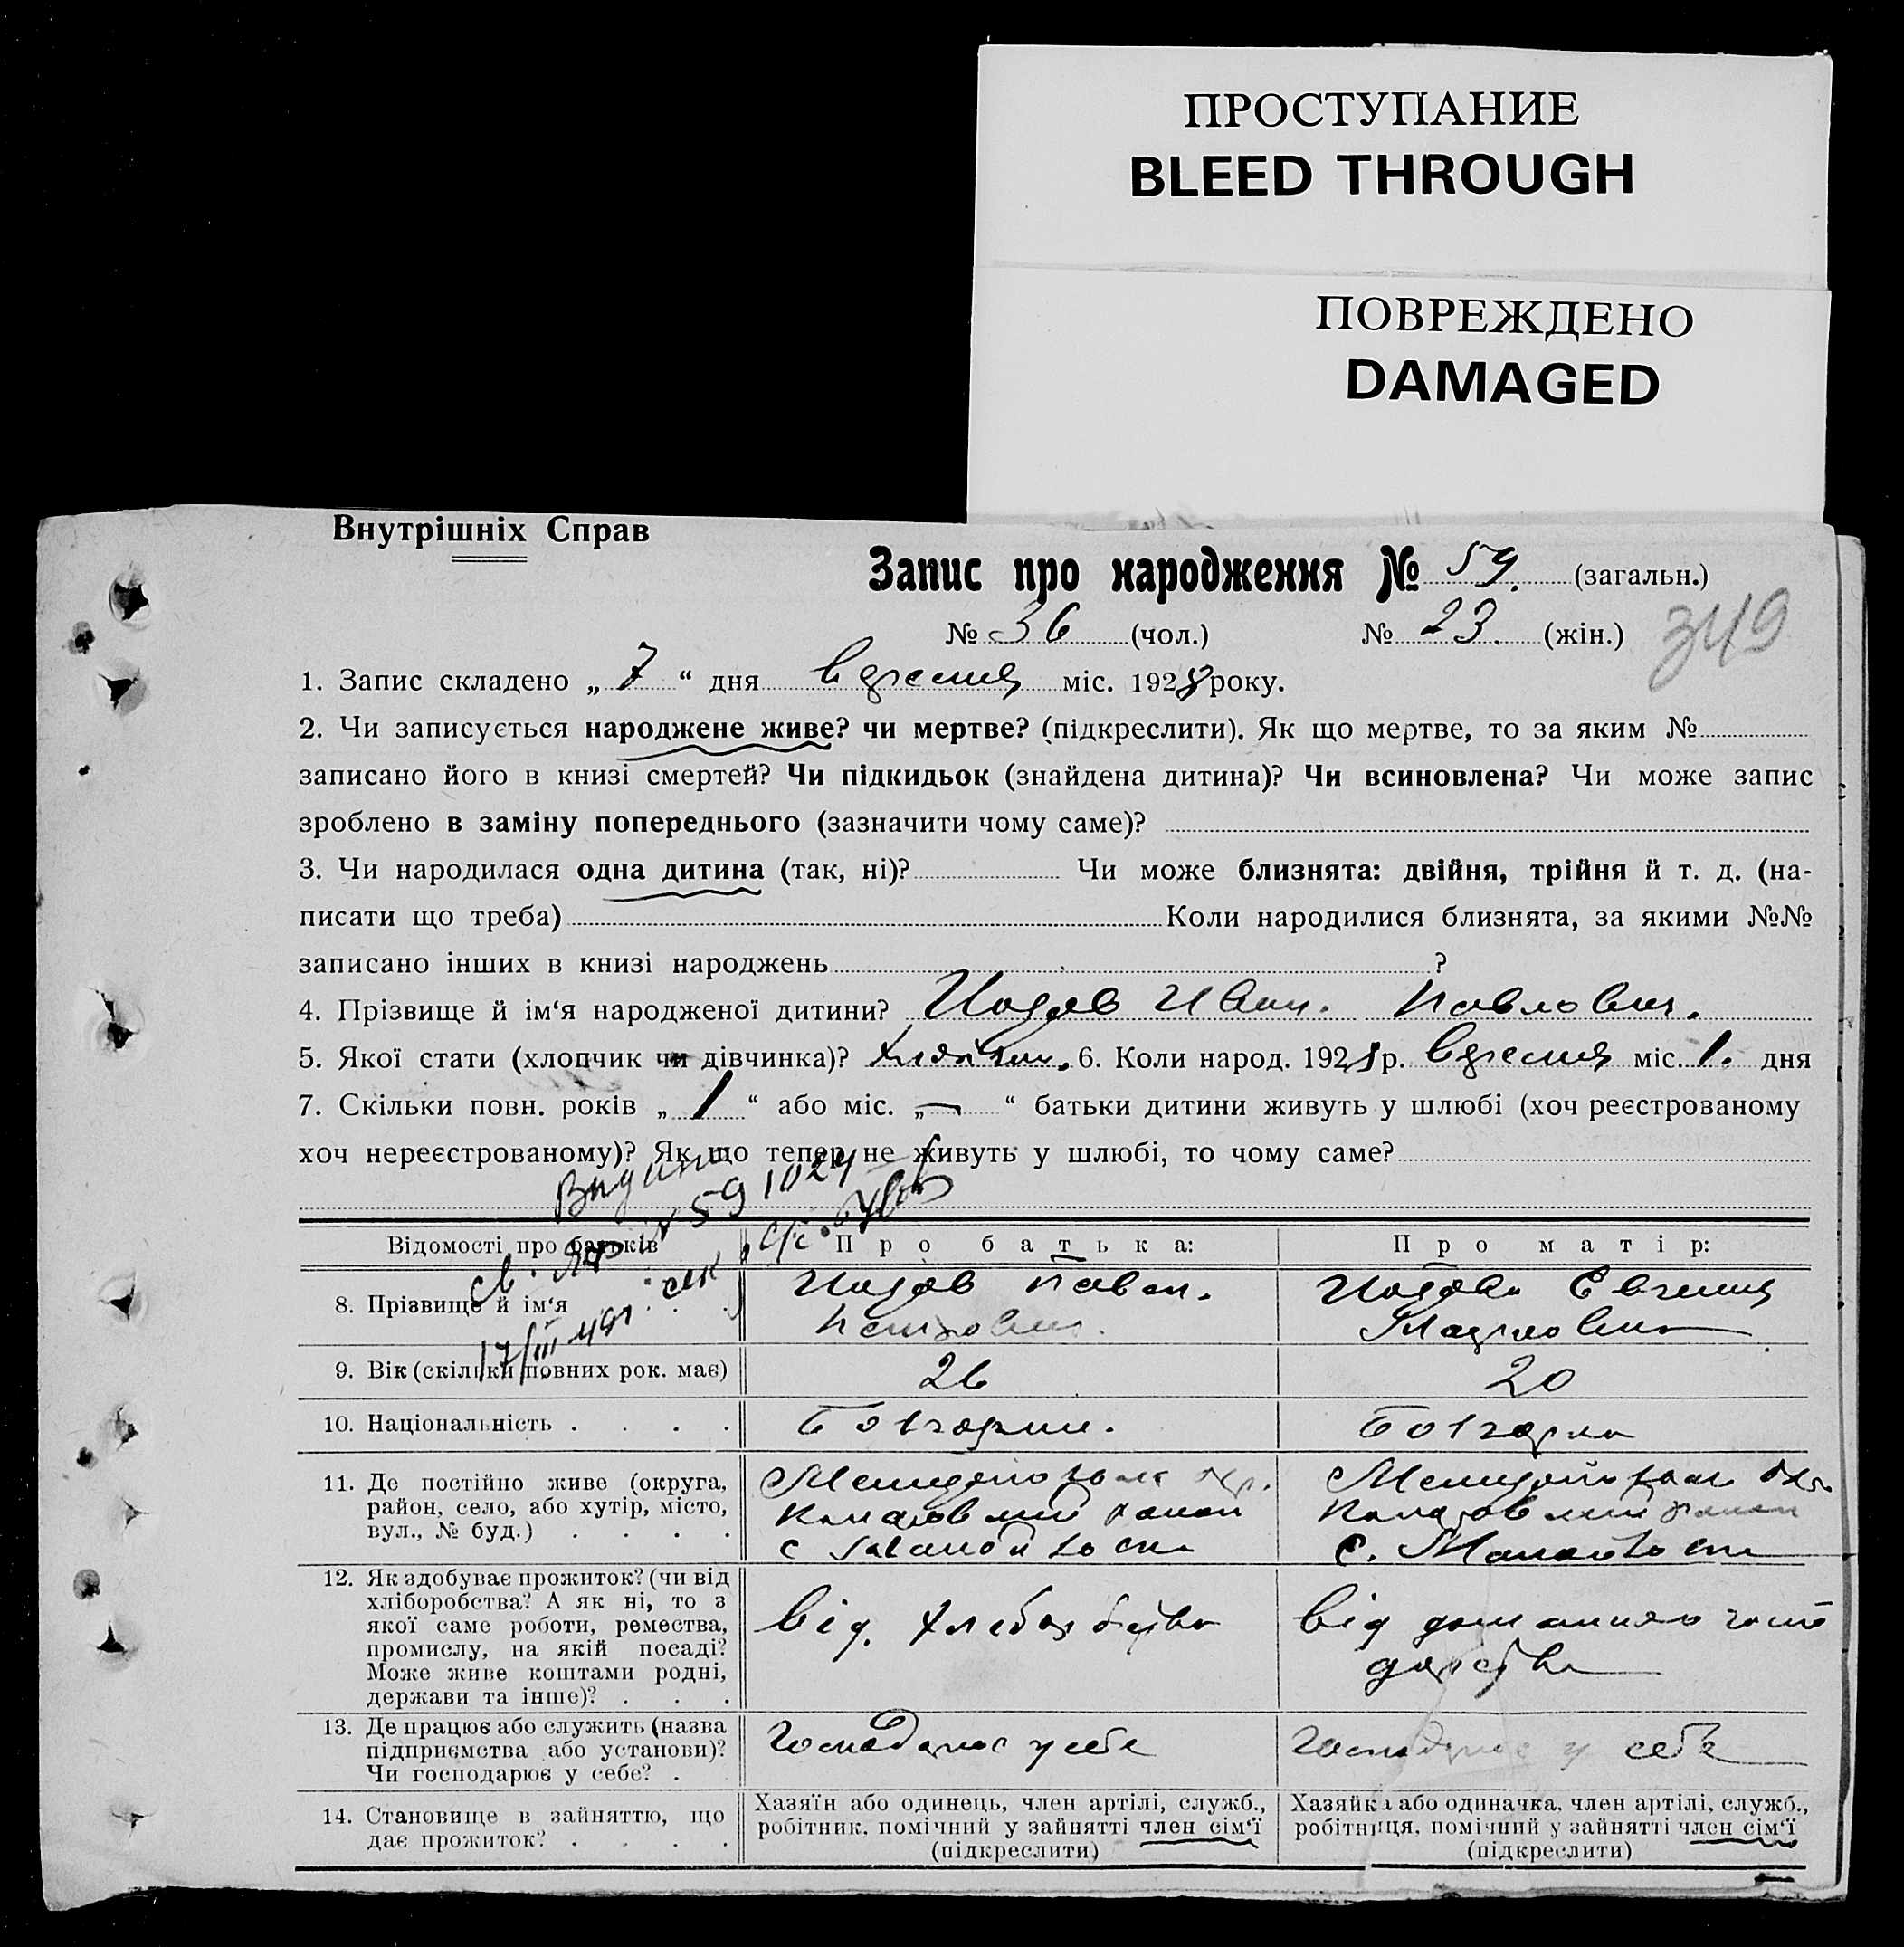 ПРОСТУПАНИЕ
BLEED THROUGH
ПОВРЕЖДЕНО
DAMAGED
Внутрішніх Справ
Запис про народження № 59. (загальн.)
№ 36 (чол.) № 23. (жін.) 349
1. Запис складено „ 7 “ дня вересня міс. 1928 року.
2. Чи записується народжене живе? чи мертве? (підкреслити). Як що мертве, то за яким №
записано його в книзі смертей? Чи підкидьок (знайдена дитина)? Чи всиновлена? Чи може запис
зроблено в заміну попереднього (зазначити чому саме)?
3. Чи народилася одна дитина (так, ні)? Чи може близнята: двійня, трійня й т. д. (на-
писати що треба) Коли народилися близнята, за якими №№
записано інших в книзі народжень ?
4. Прізвище й ім‘я народженої дитини? Иван. Павлович.
5. Якої стати (хлопчик чи дівчинка)? хлопчик. 6. Коли народ. 1928 р. вересня міс. 1. дня
7. Скільки повн. років „ 1 “ або міс. „ — “ батьки дитини живуть у шлюбі (хоч реєстрованому
хоч нереєстрованому)? Як що тепер не живуть у шлюбі, то чому саме?
Відомості про батьків
Про батька:
Про матір:
8. Прізвище й ім‘я . . . .
Павел.
Петрович.
9. Вік (скільки повних рок. має)
26
20
10. Національність . . . .
болгарин.
болгарка
11. Де постійно живе (округа,
район, село, або хутір, місто,
вул., № буд.) . . . .
район
район
12. Як здобуває прожиток? (чи від
хліборобства? А як ні, то з
якої саме роботи, ремества,
промислу, на якій посаді?
Може живе коштами родні,
держави та інше)? . . .
від. хлеборобства
від домашнего госпо
дарства
13. Де працює або служить (назва
підприємства або установи)?
Чи господарює у себе? .
Господарює у себе
Господарює у себе
14. Становище в зайняттю, що
дає прожиток? . . . .
Хазяїн або одинець, член артілі, служб.,
робітник, помічний у зайнятті член сім‘ї
(підкреслити)
Хазяйка або одиначка, член артілі, служб.,
робітниця, помічний у зайнятті член сім‘ї
(підкреслити)